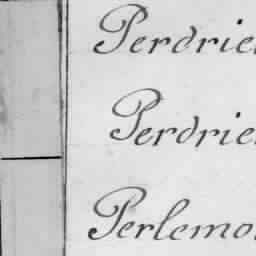 Perdrie
Perdrie
Perlemo